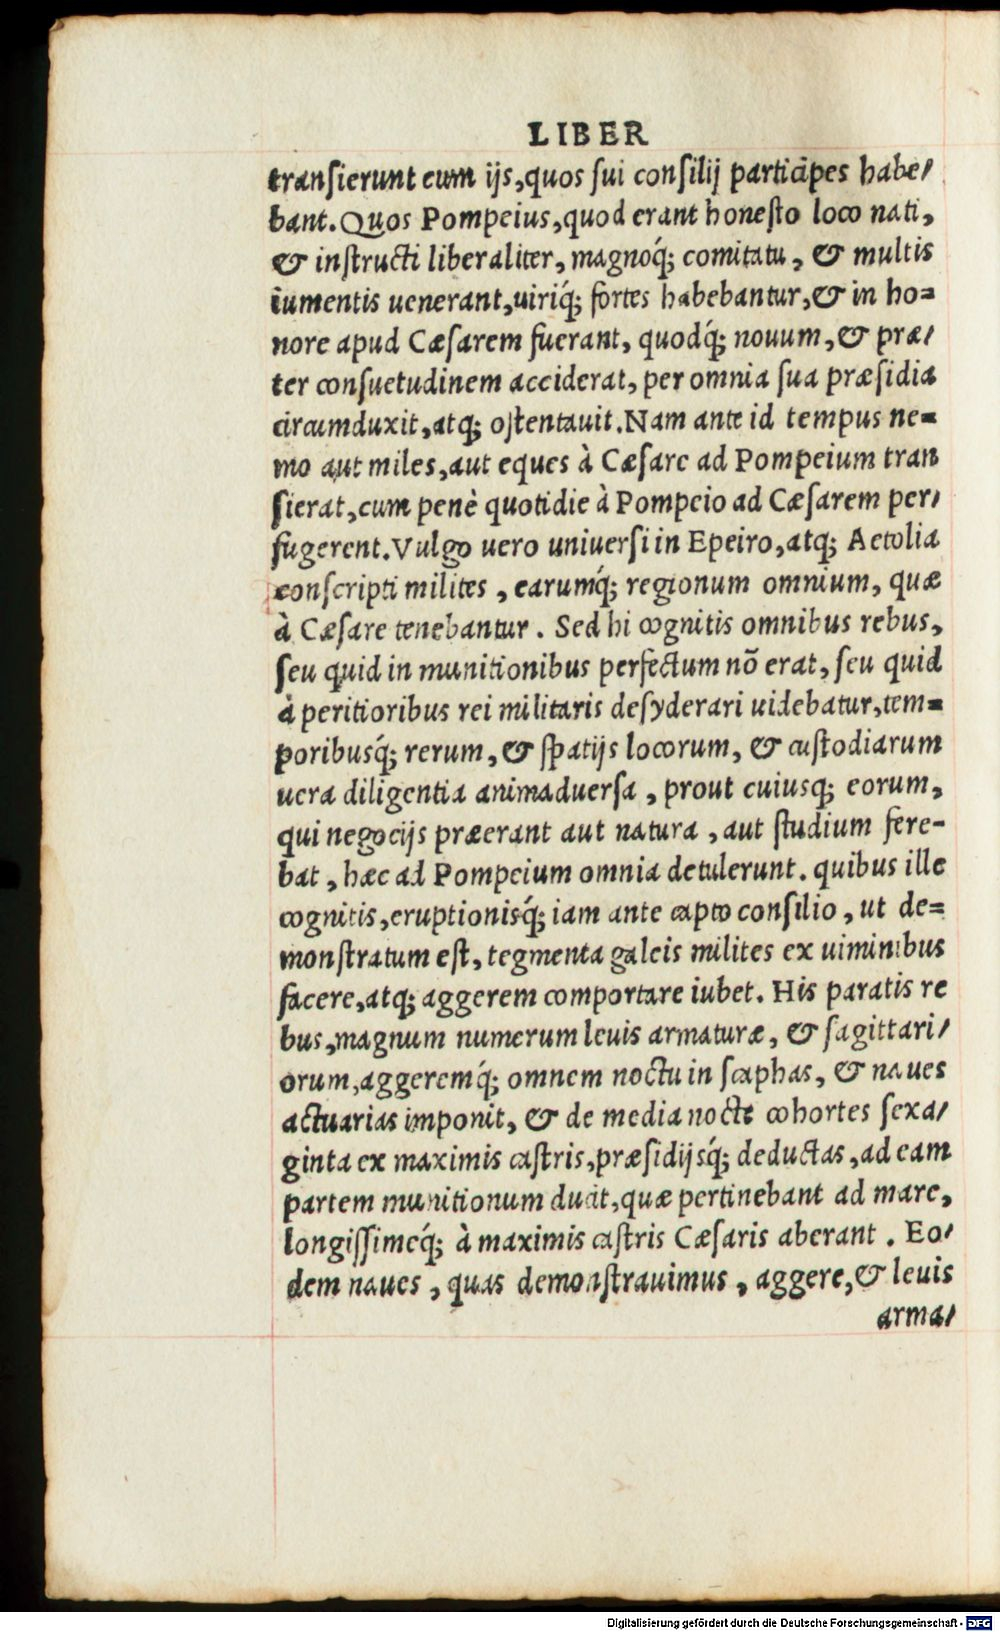 LIBER
tranſierunt cum ijs,quos ſui conſilij participes habe/
bant.Quos Pompeius,quod erant honeſto loco nati,
& inſtructi liberaliter, magnoq́; comitatu, & multis
iumentis uenerant,uiriq́; fortes habebantur,& in ho=
nore apud Cæſarem fuerant, quodq́; nouum,& præ/
ter conſuetudinem acciderat, per omnia ſua præſidia
circumduxit,atq; oſtentauit.Nam ante id tempus ne=
mo aut miles,aut eques à Cæſare ad Pompeium tran
ſierat,cum penè quotidie à Pompeio ad Cæſarem per/
fugerent.Vulgo uero uniuerſi in Epeiro,atq; Aetolia
conſcripti milites , earumq́; regionum omnium, quæ
à Cæſare tenebantur . Sed hi cognitis omnibus rebus,
ſeu quid in munitionibus perfectum nō erat, ſeu quid
à peritioribus rei militaris deſyderari uidebatur,tem=
poribusq́; rerum, & ſpatijs locorum, & cuſtodiarum
uera diligentia animaduerſa , prout cuiusq; eorum,
qui negocijs præerant aut natura , aut ſtudium fere-
bat , hæc ad Pompeium omnia detulerunt. quibus ille
cognitis,eruptionisq́; iam ante capto conſilio , ut de=
monſtratum eſt, tegmenta galeis milites ex uiminibus
facere,atq; aggerem comportare iubet. His paratis re
bus,magnum numerum leuis armaturæ, & ſagittari/
orum,aggeremq́; omnem noctu in ſcaphas, & naues
actuarias imponit, & de media nocte cohortes ſexa/
ginta ex maximis caſtris,præſidijsq́; deductas ,ad eam
partem munitionum ducit,quæ pertinebant ad mare,
longiſſimeq́; à maximis caſtris Cæſaris aberant . Eo/
dem naues , quas demonſtrauimus , aggere,& leuis
arma/
Digitalisierung gefördert durch die Deutsche Forschungsgemeinschaft - DFG